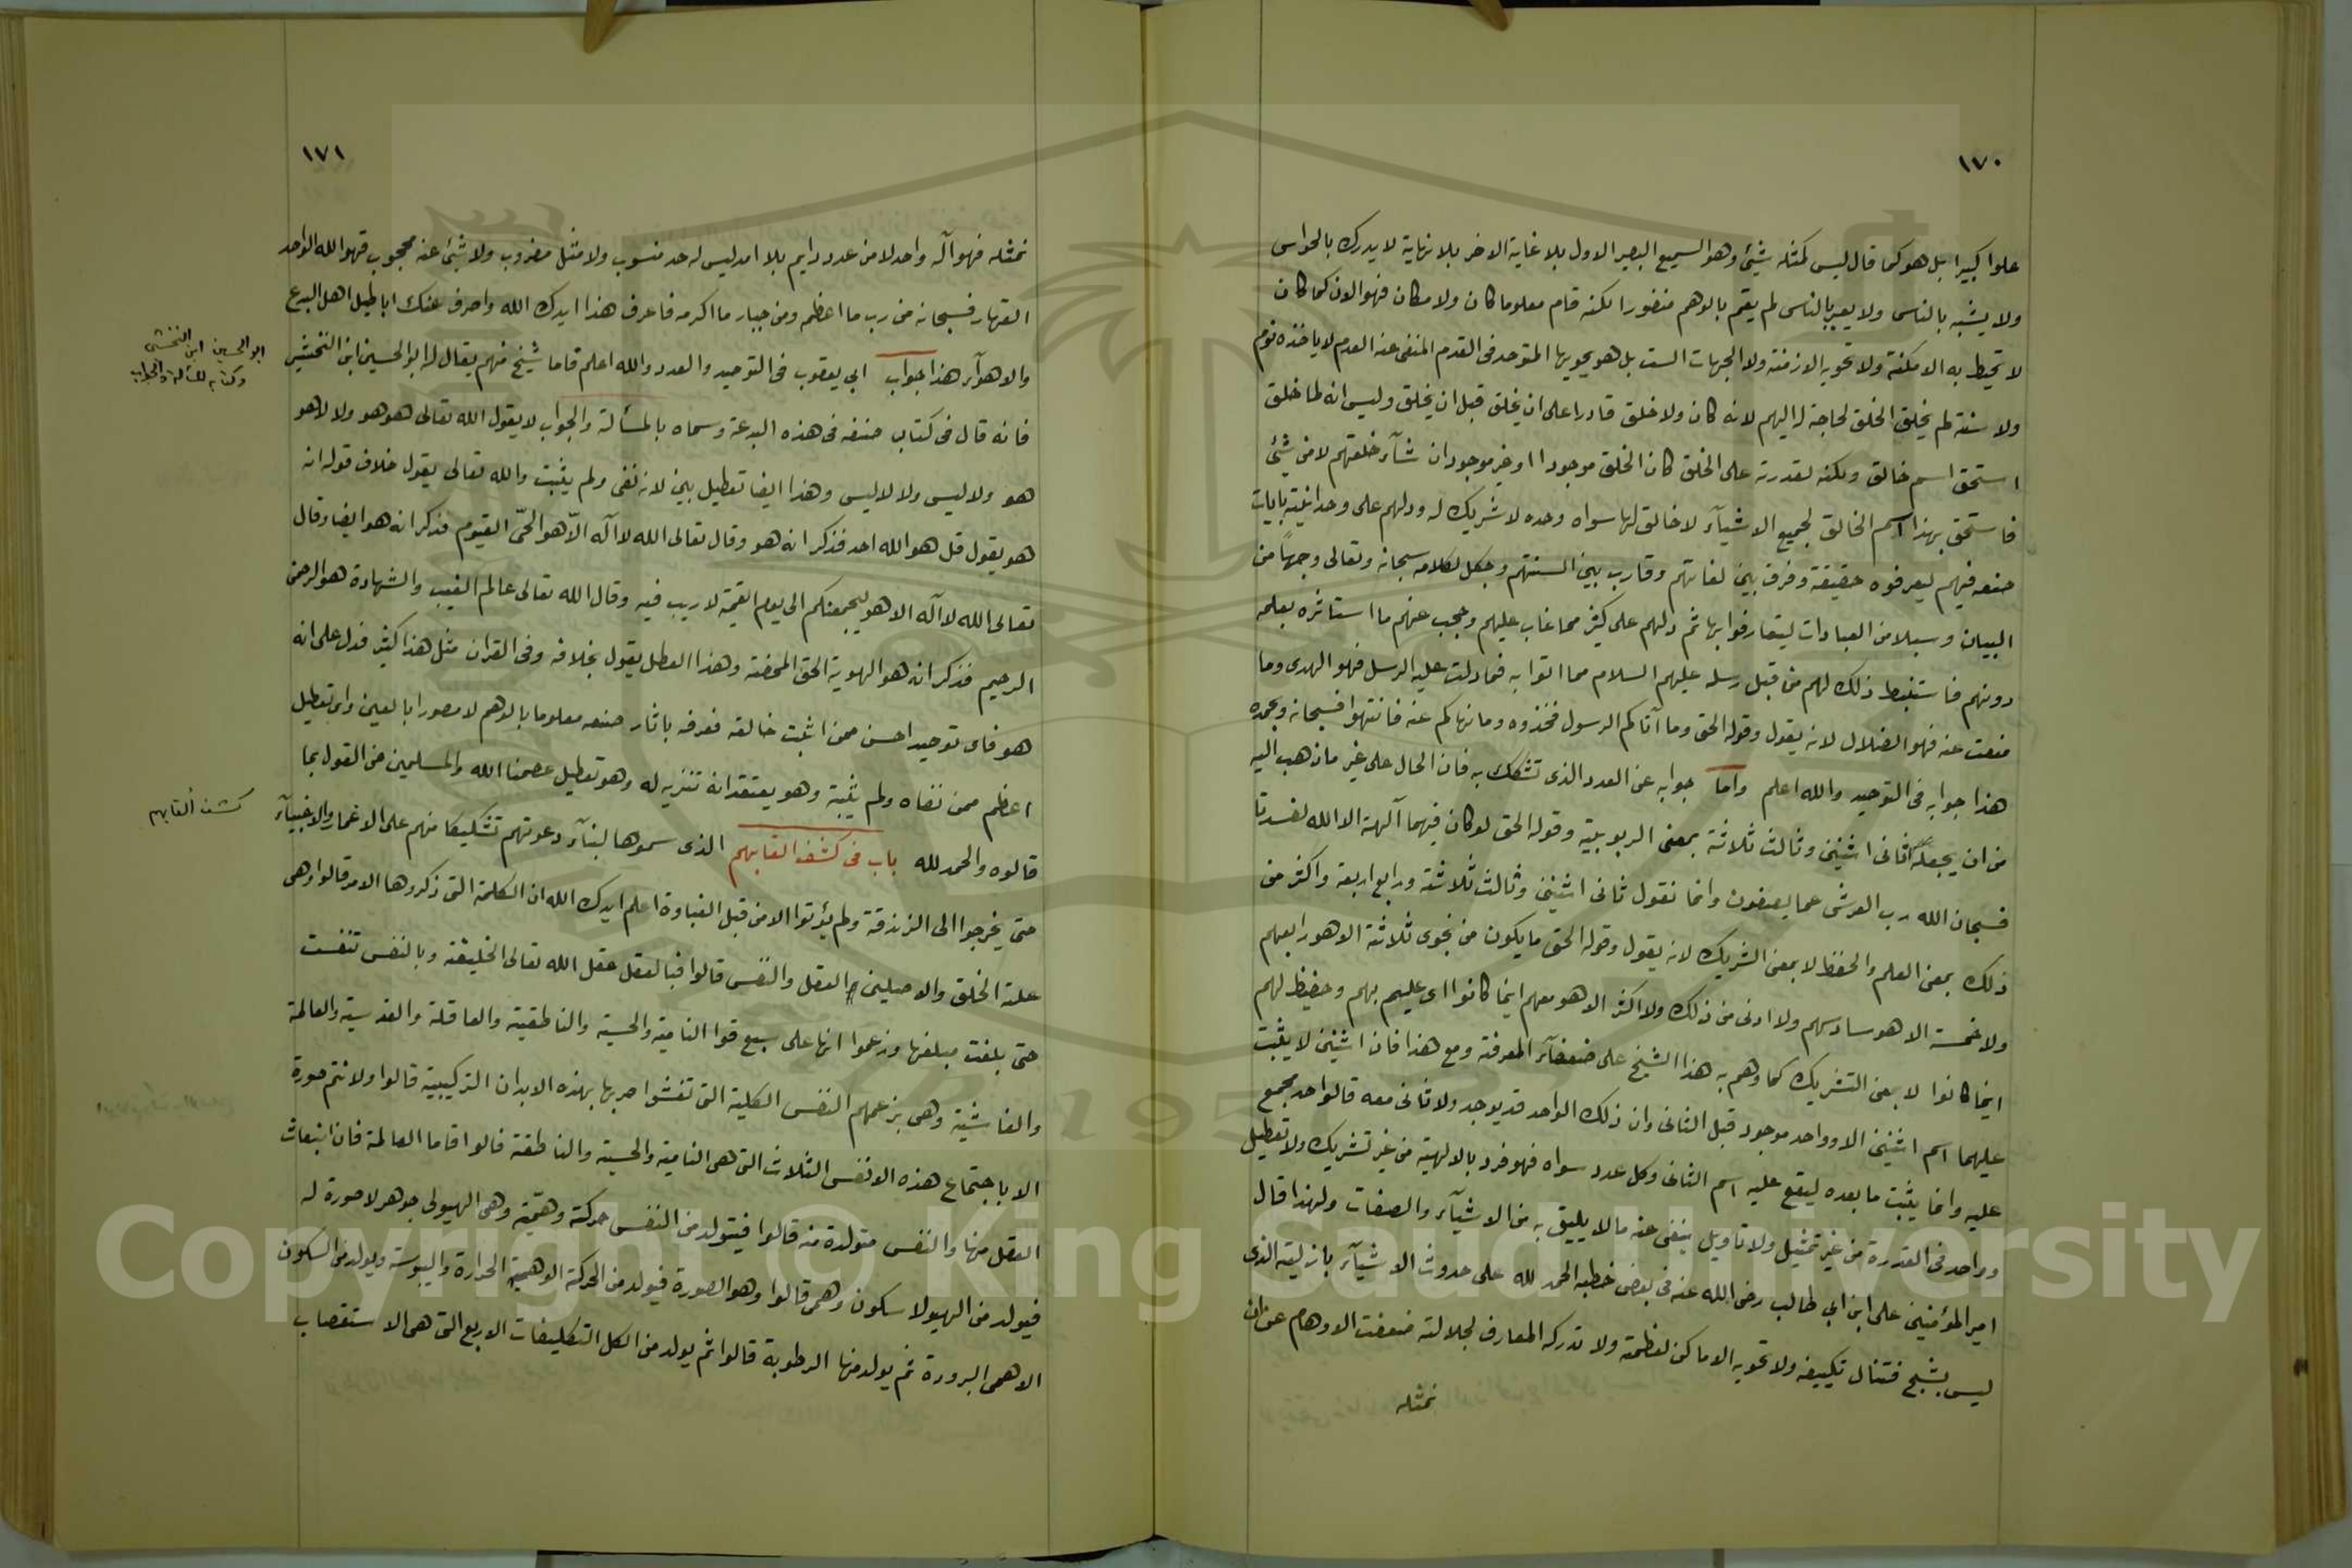 ١٧٠
علوا كبيرا بل هو كما قال ليس كمثله شيئ وهو السميع البصير الاول بلا غاية الاخر بلا نهاية لا يدرك بالحواس
ولا يشبه بالناس ولا يعبر بالناس لم يقم بالوهم منضورا لكنه قام معلوما كان ولا مكان فهو الان كما كان
لا تحيط به الامكنة ولا تحويه الازمنة ولا الجهات الست بل هو يحويها المتوحد فى القدم المنفى عنه العدم لا ياخذه نوم
ولا سنة لم يخلق الخلق لحاجة له اليهم لانه كان ولا خلق قادرا على ان يخلق قبل ان يخلق وليس انه لما خلق
استحق اسم خالق ولكنه لقدرته على الخلق كان الخلق موجودا او غير موجود ان شآء خلقهم لا من شيئ
فاستحق بهذا اسم الخالق لجميع الاشيآء لا خالق لها سواه وحده لا شريك له ودلهم على وحدانيته بايات
صنعه فيهم ليعرفوه حقيقة وفرق بين لغاتهم وقارب بين السنتهم وجعل لكلامه سبحانه وتعالى وجهاً من
البيان وسبلا من العبادات ليتعارفوا بها ثم دلهم على كثير مما غاب عليهم وحجب عنهم ما استاثره بعلمه
دونهم فاستنبط ذلك لهم من قبل رسله عليهم السلام مما اتوا به فما دلت عليه الرسل فهو الهدى وما
منعت عنه فهو الضلال لانه يقول وقوله الحق وما آتاكم الرسول فخذوه وما نهاكم عنه فانتهوا فسبحانه وبحمده
هذا جوابه فى التوحيد والله اعلم واما جوابه عن العدد الذى تشكك به فان الحال على غير ما ذهب اليه
من ان يجعله ثانى اثنين وثالث ثلاثة بمعنى الربوبية وقوله الحق لو كان فيهما آلهة الا الله لفسدتا
فسبحان الله رب العرش عما يصفون وانما نقول ثانى اثنين وثالث ثلاثة ورابع اربعة واكثر من
ذلك بمعنى العلم والحفظ لا بمعنى الشريك لانه يقول وقوله الحق ما يكون من نجوى ثلاثة الا هو رابعهم
ولا خمسة الا هو سادسهم ولا ادنى من ذلك ولا اكثر الا هو معهم اينما كانوا اى عليم بهم وحفيظ لهم
اينما كانوا لا بمعنى التشريك كما وهم به هذا الشيخ على ضعفآء المعرفة ومع هذا فان اثنين لا يثبت
عليهما اسم اثنين الا وواحد موجود قبل الثانى وان ذلك الواحد قد يوجد ولا ثانى معه قالواحد مجمع
عليه وانما يثبت ما بعده ليقع عليه اسم الثانى وكل عدد سواه فهو فرد بالالهية من غير تشريك ولا تعطيل
وواحد فى القدرة من غير تمثيل ولا تاويل ينفى عنه ما لا يليق به من الاشيآء والصفات ولهذا قال
امير المؤمنين على ابن ابي طالب رضى الله عنه فى بعض خطبه الحمد لله على حدوث الاشيآء بازليته الذى
ليس بشبح فتنال تكييفه ولا تحويه الاماكن لعظمته ولا تدركه المعارف لجلالته ضعفت الاوهام عن ان
نمثله
١٧١
نمثله فهو آله واحد لا من عدد دايم بلا امد ليس له حد منسوب ولا مثل مضروب ولا شيئ عنه محجوب فهو الله الواحد
القهار فسبحانه من رب ما اعظم ومن جبار ما اكرمه فاعرف هذا ايدك الله واصرف عنك اباطيل اهل البدع
والاهوآء هذا جواب ابي يعقوب فى التوحيد والعدد والله اعلم فاما شيخ منهم يقال له ابو الحسين ابن النخشبى
ابو الحسين ابن النخشبى
وكتابه المسألة والجواب
فانه قال فى كتاب صنفه فى هذه البدعة وسماه بالمسألة والجواب لا يقول الله تعالى هو هو ولا لا هو
هو ولا ليس ولا لا ليس وهذا ايضا تعطيل بين لانه نفى ولم يثبت والله تعالى يقول خلاف قوله انه
هو يقول قل هو الله احد فذكر انه هو وقال تعالى الله لا آله الّا هو الحىّ القيوم فذكر انه هو ايضا وقال
تعالى الله لا آله الا هو ليجمعنكم الى يوم القيمة لا ريب فيه وقال الله تعالى عالم الغيب والشهادة هو الرحمن
الرحيم فذكر انه هو الهوية الحق المحضة وهذا المعطل يقول بخلافه وفى القران مثل هذا كثير فدل على انه
هو فاى توحيد احسن ممن اثبت خالقه فعرفه باثار صنعه معلوما بالوهم لا مصورا بالعين واى تعطيل
اعظم ممن نفاه ولم يثبته وهو يعتقد انه تنزيه له وهو تعطيل عصمنا الله والمسلمين من القول بما
قالوه والحمد لله باب فى كشف القابهم الذى سموها لبنآء دعوتهم تشكيكا منهم على الاغمار والاغبيآء
كشف ألقابهم
حتى يخرجوا الى الزندقة ولم يؤتوا الا من قبل الغباوة اعلم ايدك الله ان الكلمة التى ذكروها الامر قالوا وهى
علة الخلق والاصلين العقل والنفس قالوا فبالعقل عقل الله تعالى الخليقة وبالنفس تنفست
حتى بلغت مبلغها وزعموا انها على سبع قوا النامية والحسية والناطقية والعاقلة والقدسية والعالمة
والغاشية وهى بزعمهم النفس الكلية التى تغشوا صربها بهذه الابدان التركيبية قالوا ولا تتم صورة
الا باجتماع هذه الانفس الثلاث التى هى النامية والحسية والناطقة قالوا فاما العالمة فان انبعاث
العقل منها والنفس متولدة منه قالوا فيتولد من النفس حركة وهمّية وهى الهيولى جوهر لا صورة له
فيولد من الهيولا سكون وهمى قالوا وهو الصورة فيولد من الحركة الوهمية الحرارة واليبوسة ويولد من السكون
الاهمى البرودة ثم يولد منها الرطوبة قالوا ثم يولد من الكل التكليفات الاربع التى هى الاستقصاب
Copyright © King Saud University
195